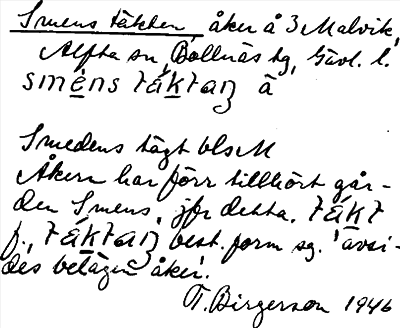 Smens täkten åker å 3 Malvik,
Alfta sn, Bollnäs tg, Gävl. l.
smens täktaṉ å
Smedens tägt blsM
Åkern har förr tillhört går-
den Smens, jfr detta. täkt
f., täktaṉ best. form sg. 'avsi-
des belägen åker'.
T. Birgerson 1946